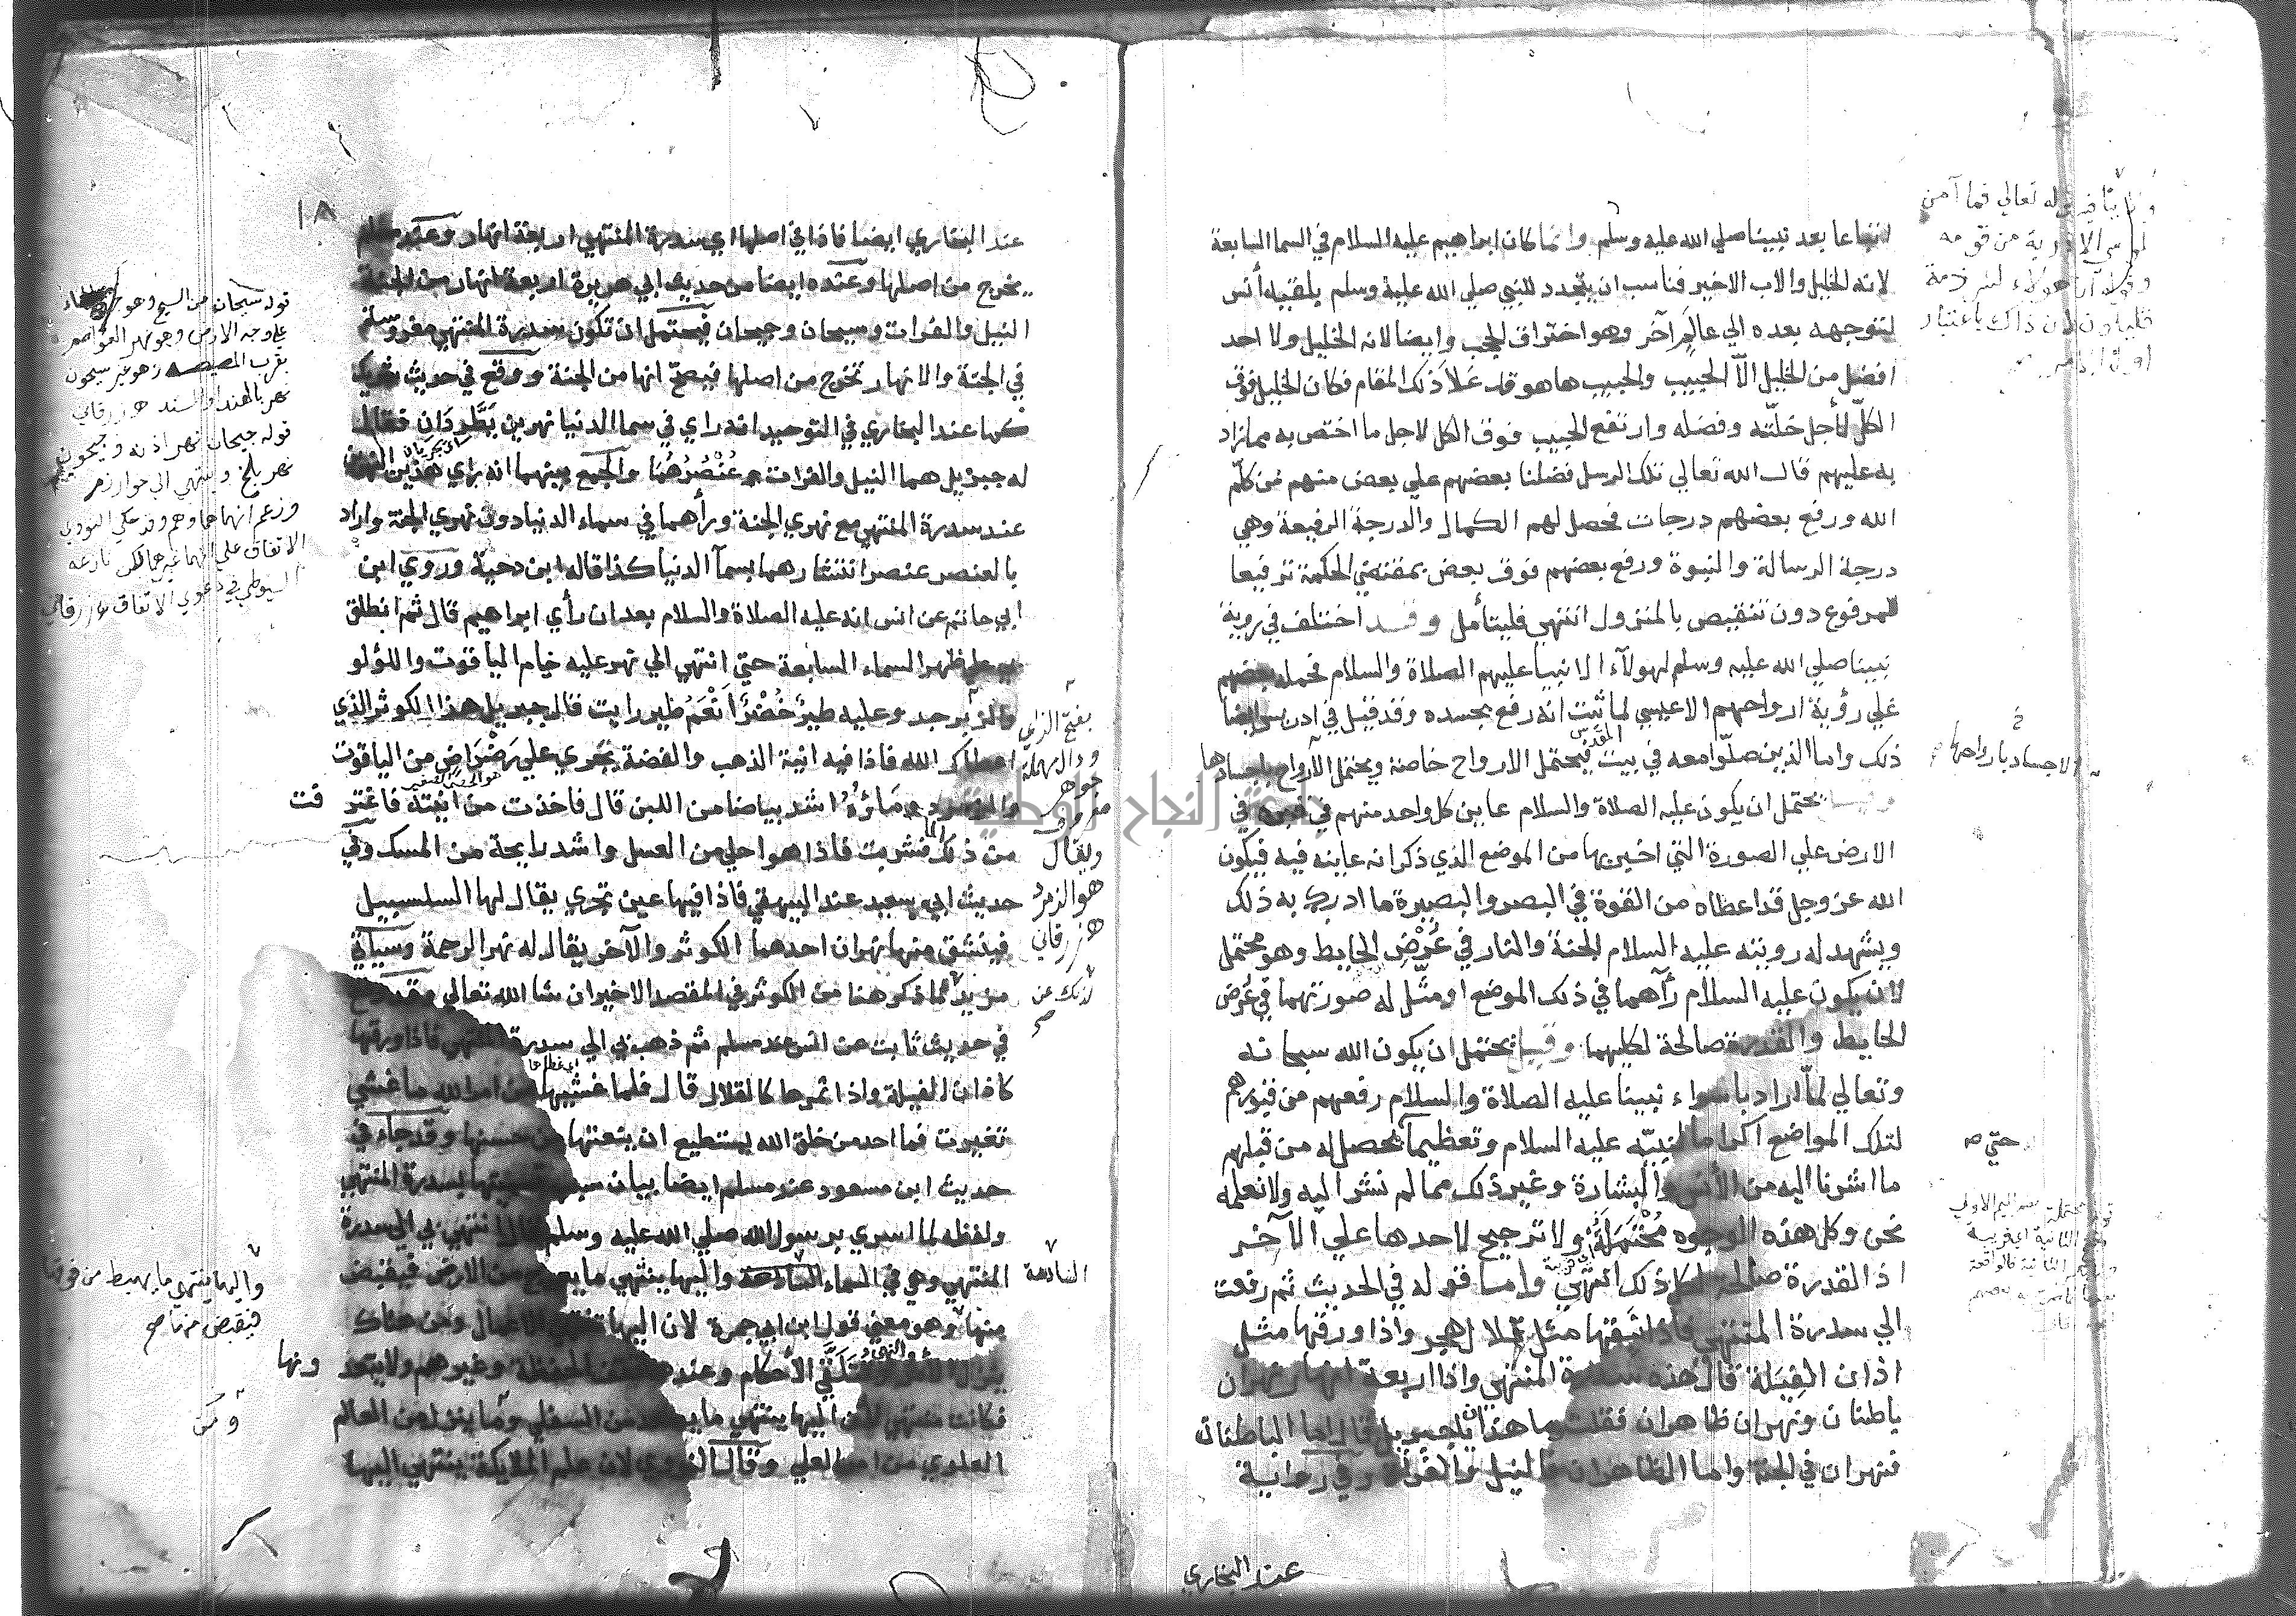 انتفاعا بعد نبينا صلي الله عليه وسلم وانما كان ابراهيم عليه السلام في السما السابعة
لانه الخليل والاب الاخير فناسب ان يتجدد للنبي صلي الله عليه وسلم بلقيه أنس
لتوجهه بعده الي عالم آخر وهو اختراق الحجب وايضا لانه الخليل ولا احد
افضل من الخليل الاّ الحبيب والحبيب ها هو قد علا ذلك المقام فكان الخليل فوق
الكلّ لأجل خلّته وفضله وارتفع الحبيب فوق الكل لاجل ما اختص به مما زاد
به عليهم قال الله تعالي تلك الرسل فضلنا بعضهم علي بعض منهم من كلّم
الله ورفع بعضهم درجات فحصل لهم الكمال والدرجة الرفيعة وهي
درجة الرسالة والنبوة ورفع بعضهم فوق بعض بمقتضي الحكمة ترفيعا
للمرفوع دون تنقيص بالمنزول انتهي فليتأمل وقد اختلف في روية
نبينا صلي الله عليه وسلم لهولآء الانبيا عليهم الصلاة والسلام فحمله بعضهم
علي رؤية ارواحهم الا عيسي لما ثبت انه رفع بجسده وقد قيل في ادريس ايضا
ذلك واما الذين صلّوا معه في بيت المقدس فيحتمل الارواح خاصة ويحتمل الارواح باجسادها
الاجساد بارواحها
يحتمل ان يكون عليه الصلاة والسلام عاين كل واحد منهم في قبره في
الارض علي الصورة التي اخبر بها من الموضع الذي ذكر انه عاينه فيه فيكون
الله عز وجل قد اعطاه من القوة في البصر والبصيرة ما ادرك به ذلك
ويشهد له رويته عليه السلام الجنة والنار في عُرْض الحايط وهو محتمل
لان يكون عليه السلام رآهما في ذلك الموضع او مثّل له صورتهما في عُرض
الحايط والقدرة صالحة لكليهما وقيل يحتمل ان يكون الله سبحانه
وتعالي لمّا اراد باسراء نبينا عليه الصلاة والسلام رفعهم من قبورهم
لتلك المواضع اكراما لنبيّه عليه السلام وتعظيما حتي يحصل له من قبلهم
ما اشرنا اليه من الأنس والبشارة وغير ذلك مما لم نشر اليه ولا نعلمه
نحن وكل هذه الوجوه مُحْتَمَلَةٌ ولا ترجيح لاحدها علي الآخر
اذ القدرة صالحة لكل ذلك انتهي واما قوله في الحديث ثم رفعت
الي سدرة المنتهي فاذا نبقها مثل قلال هجر واذا ورقها مثل
اذان الفيلة قال هذه سدرة المنتهي واذا اربعة انهار نهران
باطنان ونهران ظاهران فقلت ما هذان يا جبريل قال اما الباطنان
فنهران في الجنة واما الظاهران فالنيل والفرات وفي رواية
عند البخاري
١٨
عند البخاري ايضا فاذا في اصلها اي سدرة المنتهي اربعة انهار وعند مسلم
يخرج من اصلها وعنده ايضا من حديث ابي هريرة اربعة انهار من الجنة
النيل والفرات وسيحان وجيحان فيحتمل ان تكون سدرة المنتهي مغروسة
في الجنة والانهار تخرج من اصلها فيصحّ انها من الجنة ووقع في حديث شريك
كما عند البخاري في التوحيد انه راي في سما الدنيا نهرين يَطَّرِدَان فقال
له جبريل هما النيل والفرات عُنْصُرُهُمَا والجمع بينهما انه راي هذين النهرين
عند سدرة المنتهي مع نهري الجنة ورأهما في سماء الدنيا دون نهري الجنة واراد
بالعنصر عنصر انتشارهما بسمآ الدنيا كذا قاله ابن دحية وروي ابن
ابي حاتم عن انس انه عليه الصلاة والسلام بعد ان رأي ابراهيم قال ثم انطلق
بي علي ظهر السماء السابعة حتي انتهي الي نهر عليه خيام الياقوت واللؤلو
والزبرجد وعليه طير خُضْرٌ أَنْعَمُ طير رايت قال جبريل هذا الكوثر الذي
اعطاك الله فاذا فيه انية الذهب والفضة يجري علي رَضْرَاض من الياقوت
والزمرد مَاؤُهُ اشد بياضا من اللبن قال فاخذت من انيته فاغترفت
من ذلك الماء فشربت فاذا هو احلي من العسل واشد رايحة من المسك وفي
حديث ابي سعيد عند البيهقي فاذا فيها عين تجري يقال لها السلسبيل
فينشق منها نهران احدهما الكوثر والآخر يقال له نهر الرحمة وسياتي
مزيد لما ذكر هنا من الكوثر في المقصد الاخير ان شا الله تعالي وقد وقع
في حديث ثابت عن انس عند مسلم ثم ذهب بي الي سدرة المنتهي فاذا ورقها
كاذان الفيلة واذا ثمرها كالقلال قال فلما غشيها من امر الله ما غشي
تغيرت فما احد من خلق الله يستطيع ان ينعتها من حسنها وقد جاء في
حديث ابن مسعود عند مسلم ايضا بيان سبب تسميتها بسدرة المنتهي
ولفظه لما اسري برسول الله صلي الله عليه وسلم قال انتهي بي الي سدرة
المنتهي وهي في السماء السادسة واليها ينتهي ما يعرج من الارض فيقبض
منها وهو معني قول ابن ابي جمرة لان اليها تنتهي الاعمال ومن هناك
ينزل الامر والنهي وتتلقي الأحكام وعندها تقف الحفظة وغيرهم ولا يتعدونها
فكانت منتهي لان اليها ينتهي ما يصعد من السفلي وما ينزل من العالم
العلوي من امر العلي وقال النووي لان علم الملايكة ينتهي اليها
قوله سيحان من السيح وهو جري الماء
علي وجه الارض وهو نهر العواصم
بقرب المصيصة وهو غير سيحون
نهر بالهند والسند هـ زرقاني
قوله جيحان نهر اذنه وجيحون
نهر بلخ وينتهي الي خوارزم
وزعم انهما هما وهم وقد حكي النووي
الاتفاق علي انهما غيرهما لكن نازعه
السيوطي في دعوي الاتفاق هـ زرقاني
بفتح الزاي
ودال مهملة
جوهر
معروف
ويقال
هو الزمرد
هـ زرقاني
السادسة
واليها ينتهي ما يهبط من فوقها
فيقبض منها صح